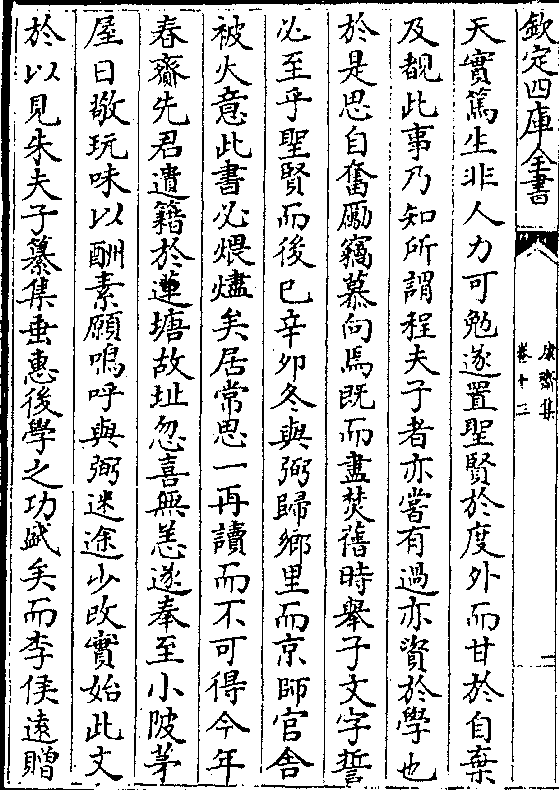 欽定四庫全書
康齋集
卷十二
天實篤生非人力可勉遂置聖賢於度外而甘於自棄
及覩此事乃知所謂程夫子者亦嘗有過亦資於學也
於是思自奮勵竊慕向焉既而盡焚舊時舉子文字誓
必至乎聖賢而後已辛卯冬與弼歸鄉里而京師官舎
被火意此書必煨燼矣居常思一再讀而不可得今年
春齋先君遺籍於蓮塘故址忽喜無恙遂奉至小陂茅
屋日敬玩味以酬素願嗚呼與弼迷途少改實始此文
於以見朱夫子纂集垂惠後學之功盛矣而李侯遠贈